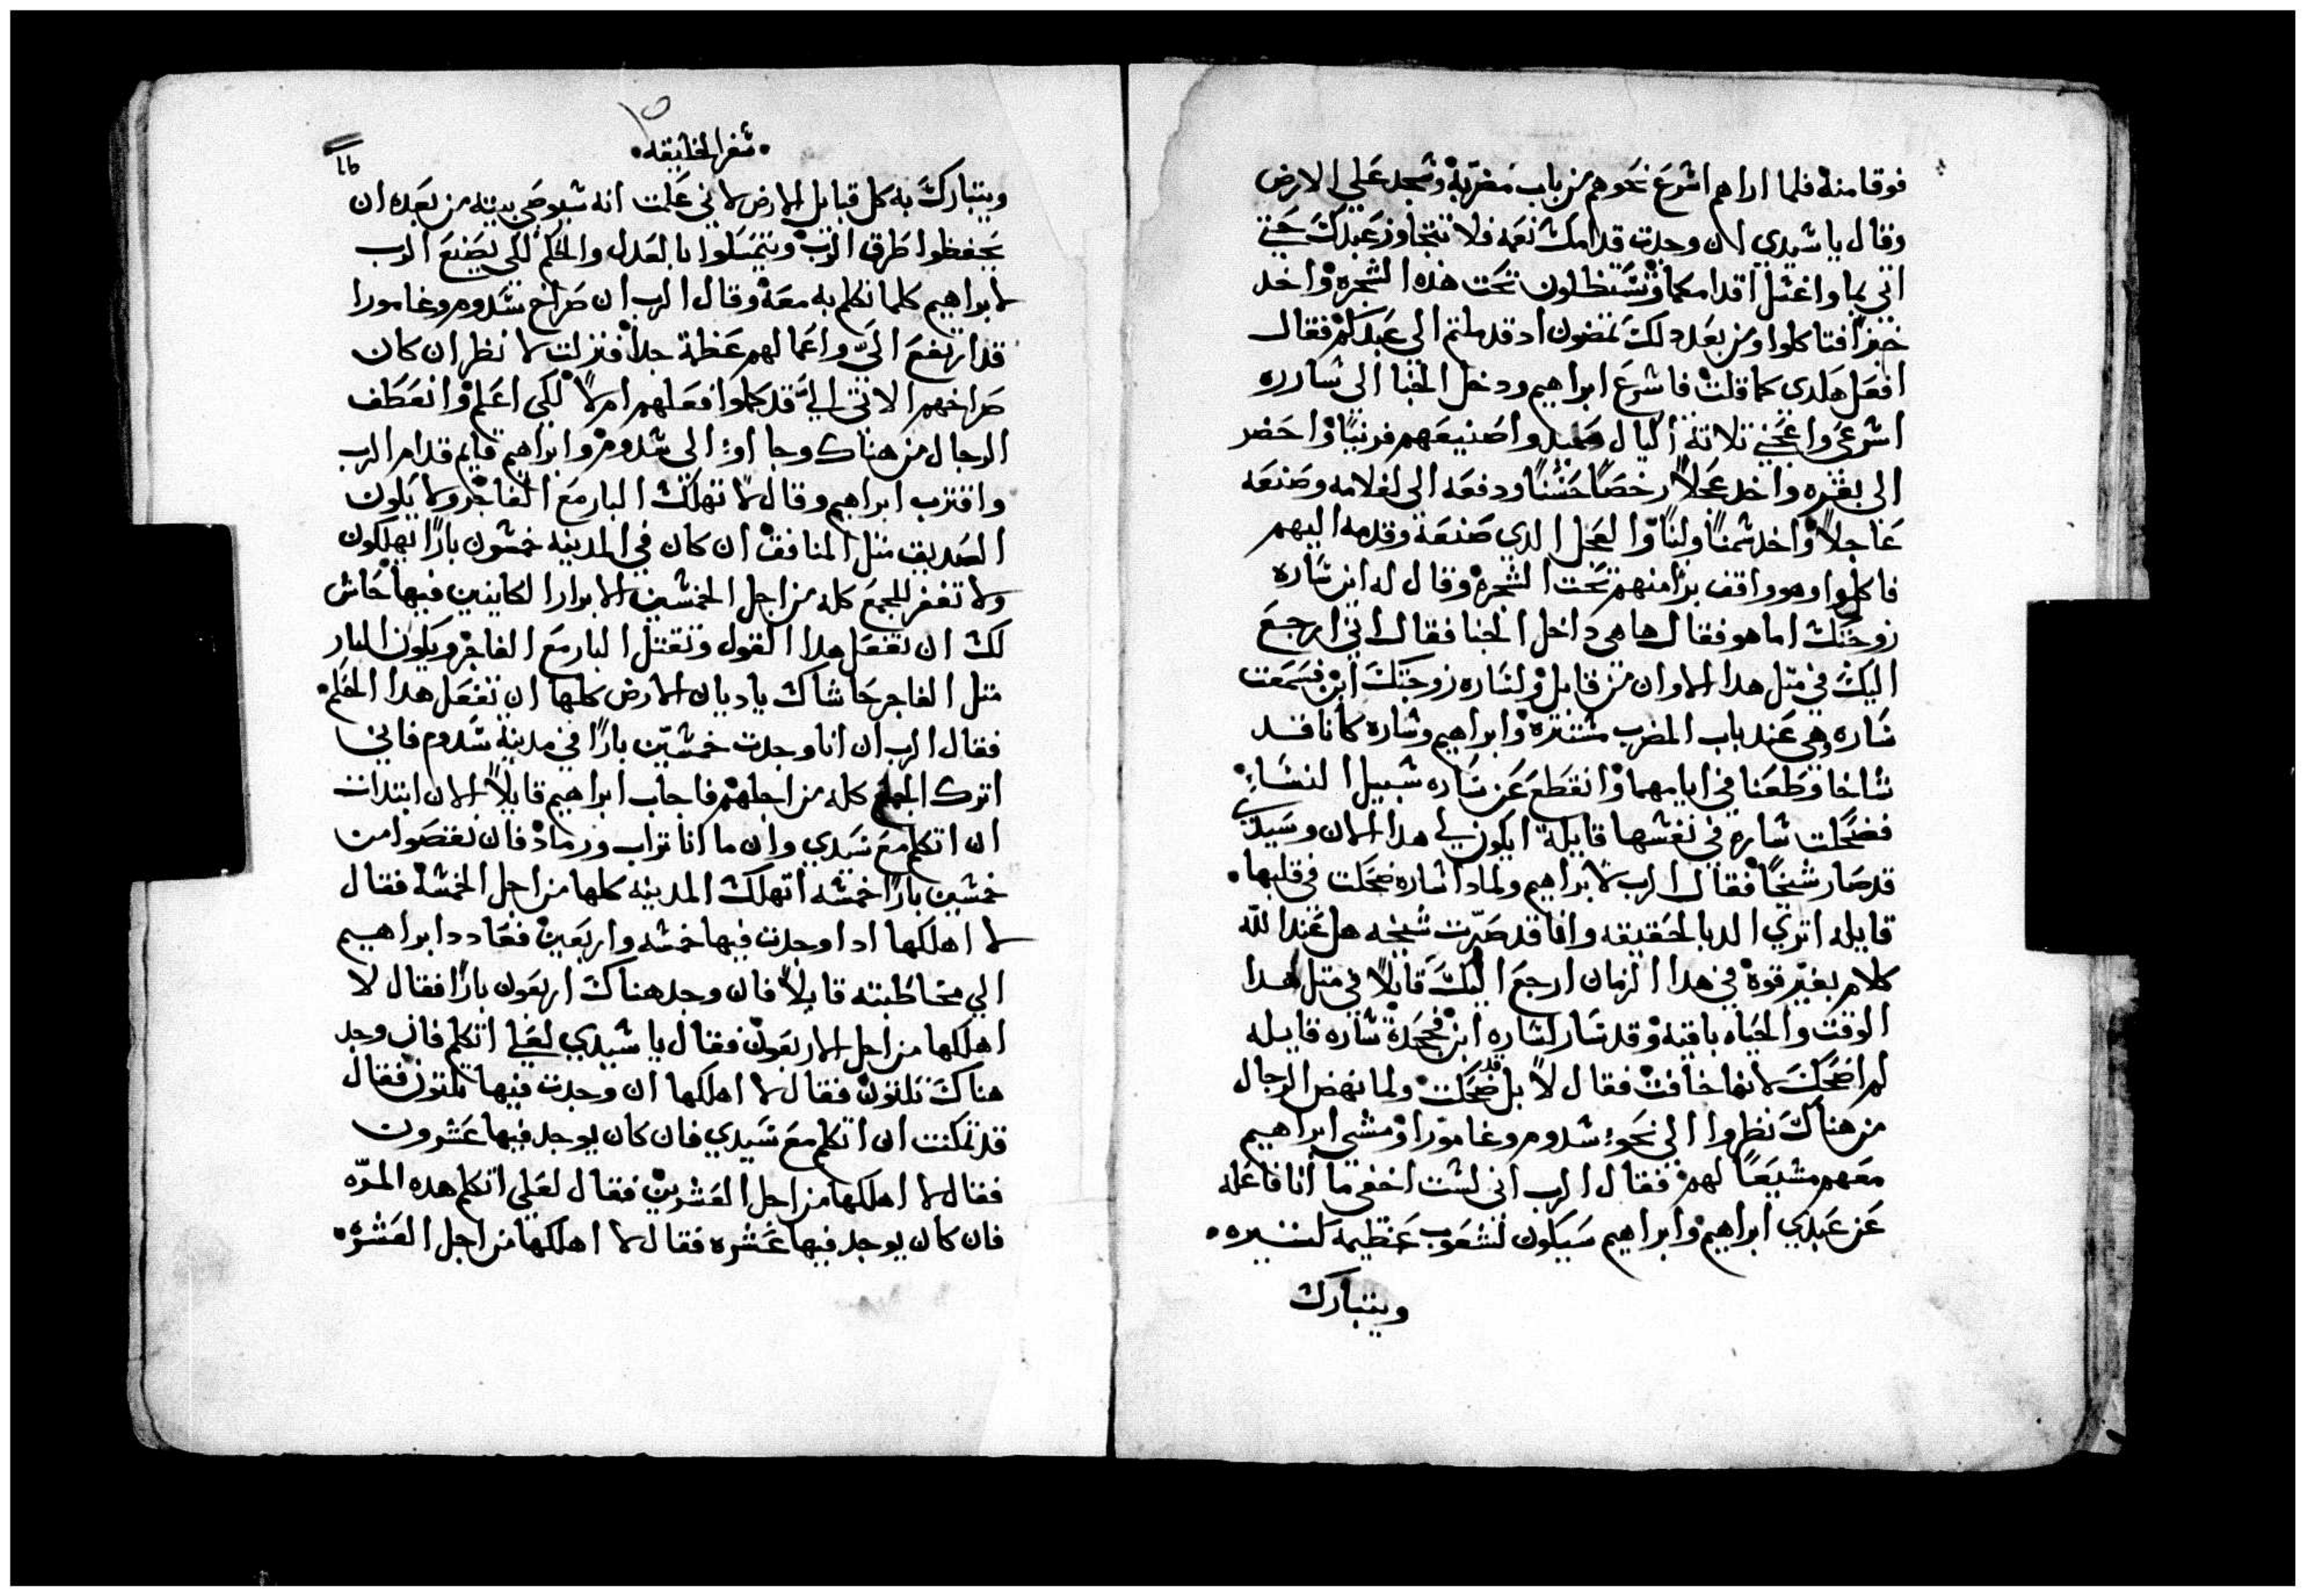 فوقا منه فلما اراهم اسرع نحوهم من باب مضربه وسجد علي الارض
وقال يا سيدي ان وجدت قدامك نعمه فلا تتجاوز عبدك حتي
اتي بما واغسل اقدامكما وتستظلون تحت هذه الشجره واخد
خبزا فتاكلوا ومن بعد دلك تمضون اد قد ملتم الى عبدكم فقال
افعل هلدى كما قلت فاسرع ابراهيم ودخل الخبا الى ساره
اسرعى واعجني تلاتة اكيال سميد واصنيعهم فرنيا واحضر
الى بقره واخد عجلا رخصا حسنا ودفعه الى لغلامه وصنعه
عاجلا واخد سمنا ولبنا والعجل الدي صنعه وقدمه اليهم
فاكلوا وهو واقف برا منهم تحت الشجره وقال له اين ساره
زوجتك اما هو فقال ها هى داخل الخبا فقال اني ارجع
اليك في متل هدا الاوان من قابل ولساره زوجتك ابن فسمعت
ساره وهي عند باب المضرب مستتره وابراهيم وساره كانا قد
شاخا وطعنا في ايامهما وانقطع عن ساره سبيل النساء
فضحكت ساره في نفسها قايلة ايكون لي هدا الان وسيدي
قد صار شيخا فقال الرب لابراهيم ولمادا ساره ضحكت في قلبها
قايله اتري الد بالحقيقه وانا قد صرت شيخه هل عند الله
كلام بغير قوه في هدا الزمان ارجع اليك قايلا في متل هدا
الوقت والحياه باقيه وقد سار لساره ابن فجحدة ساره قايله
لم اضحك لانها خافت فقال لا بل قد ضحكت ولما نهض الرجال
من هناك نظروا الى نحو سدوم وغامورا ومشى ابراهيم
معهم مشيعا لهم فقال الرب اني لست اخفي ما انا فاعله
عن عبدي ابراهيم وابراهيم سيكون لشعوب عظيمه كتيره
ويتبارك
سفر الخليقه
ويتبارك به كل قبايل الارض لاني علمت انه سيوصى بنيه من بعده ان
يحفظوا طرق الرب ويتمسلوا بالعدل والحكم للى يصنع الرب
لابراهيم كلما تكلم به معه وقال الرب ان صراخ سدوم وغامورا
قد ارتفع الي واعمالهم عظمة جدا فنزلت لانظر ان كان
صراخهم الاتي الي قد كملوا فعلهم ام لا لكي اعلم وانعطف
الرجال من هناك وجاوا الى سدوم وابراهيم قايم قدام الرب
واقترب ابراهيم وقال لا تهلك البار مع الفاجر ولا يكون
الصديق متل المنافق ان كان في المدينه خمسون بارا تهلكون
ولا تغفر للجمع كله من اجل الخمسين الابرار الكاينين فيها حاش
لك ان تفعل هدا القول وتقتل البار مع الفاجر ويكون البار
متل الفاجر حاشاك يا ديان الارض كلها ان تفعل هدا الحكم
فقال الرب ان انا وجدت خمسين بارا في مدينة سدوم فاني
اترك الجمع كله من اجلهم فاجاب ابراهيم قايلا الان ابتدات
ان اتكلم مع سيدي وان ما انا تراب ورماد فان نقصوا من
خمسين بارا خمسه اتهلك المدينه كلها من اجل الخمسة فقال
لا اهلكها ادا وجدت فيها خمسه واربعين فعاد د ابراهيم
الي مخاطبته قايلا فان وجد هناك اربعون بارا فقال لا
اهلكها من اجل الاربعون فقال يا سيدي لعلي اتكلم فان وجد
هناك تلتون فقال لا اهلكها ان وجدت فيها تلتون فقال
قد تمكنت ان اتكلم مع سيدي فان كان يوجد فيها عشرون
فقال لا اهلكها من اجل العشرين فقال لعلي اتكلم هده المره
فان كان يوجد فيها عشره فقال لا اهلكها من اجل العشره